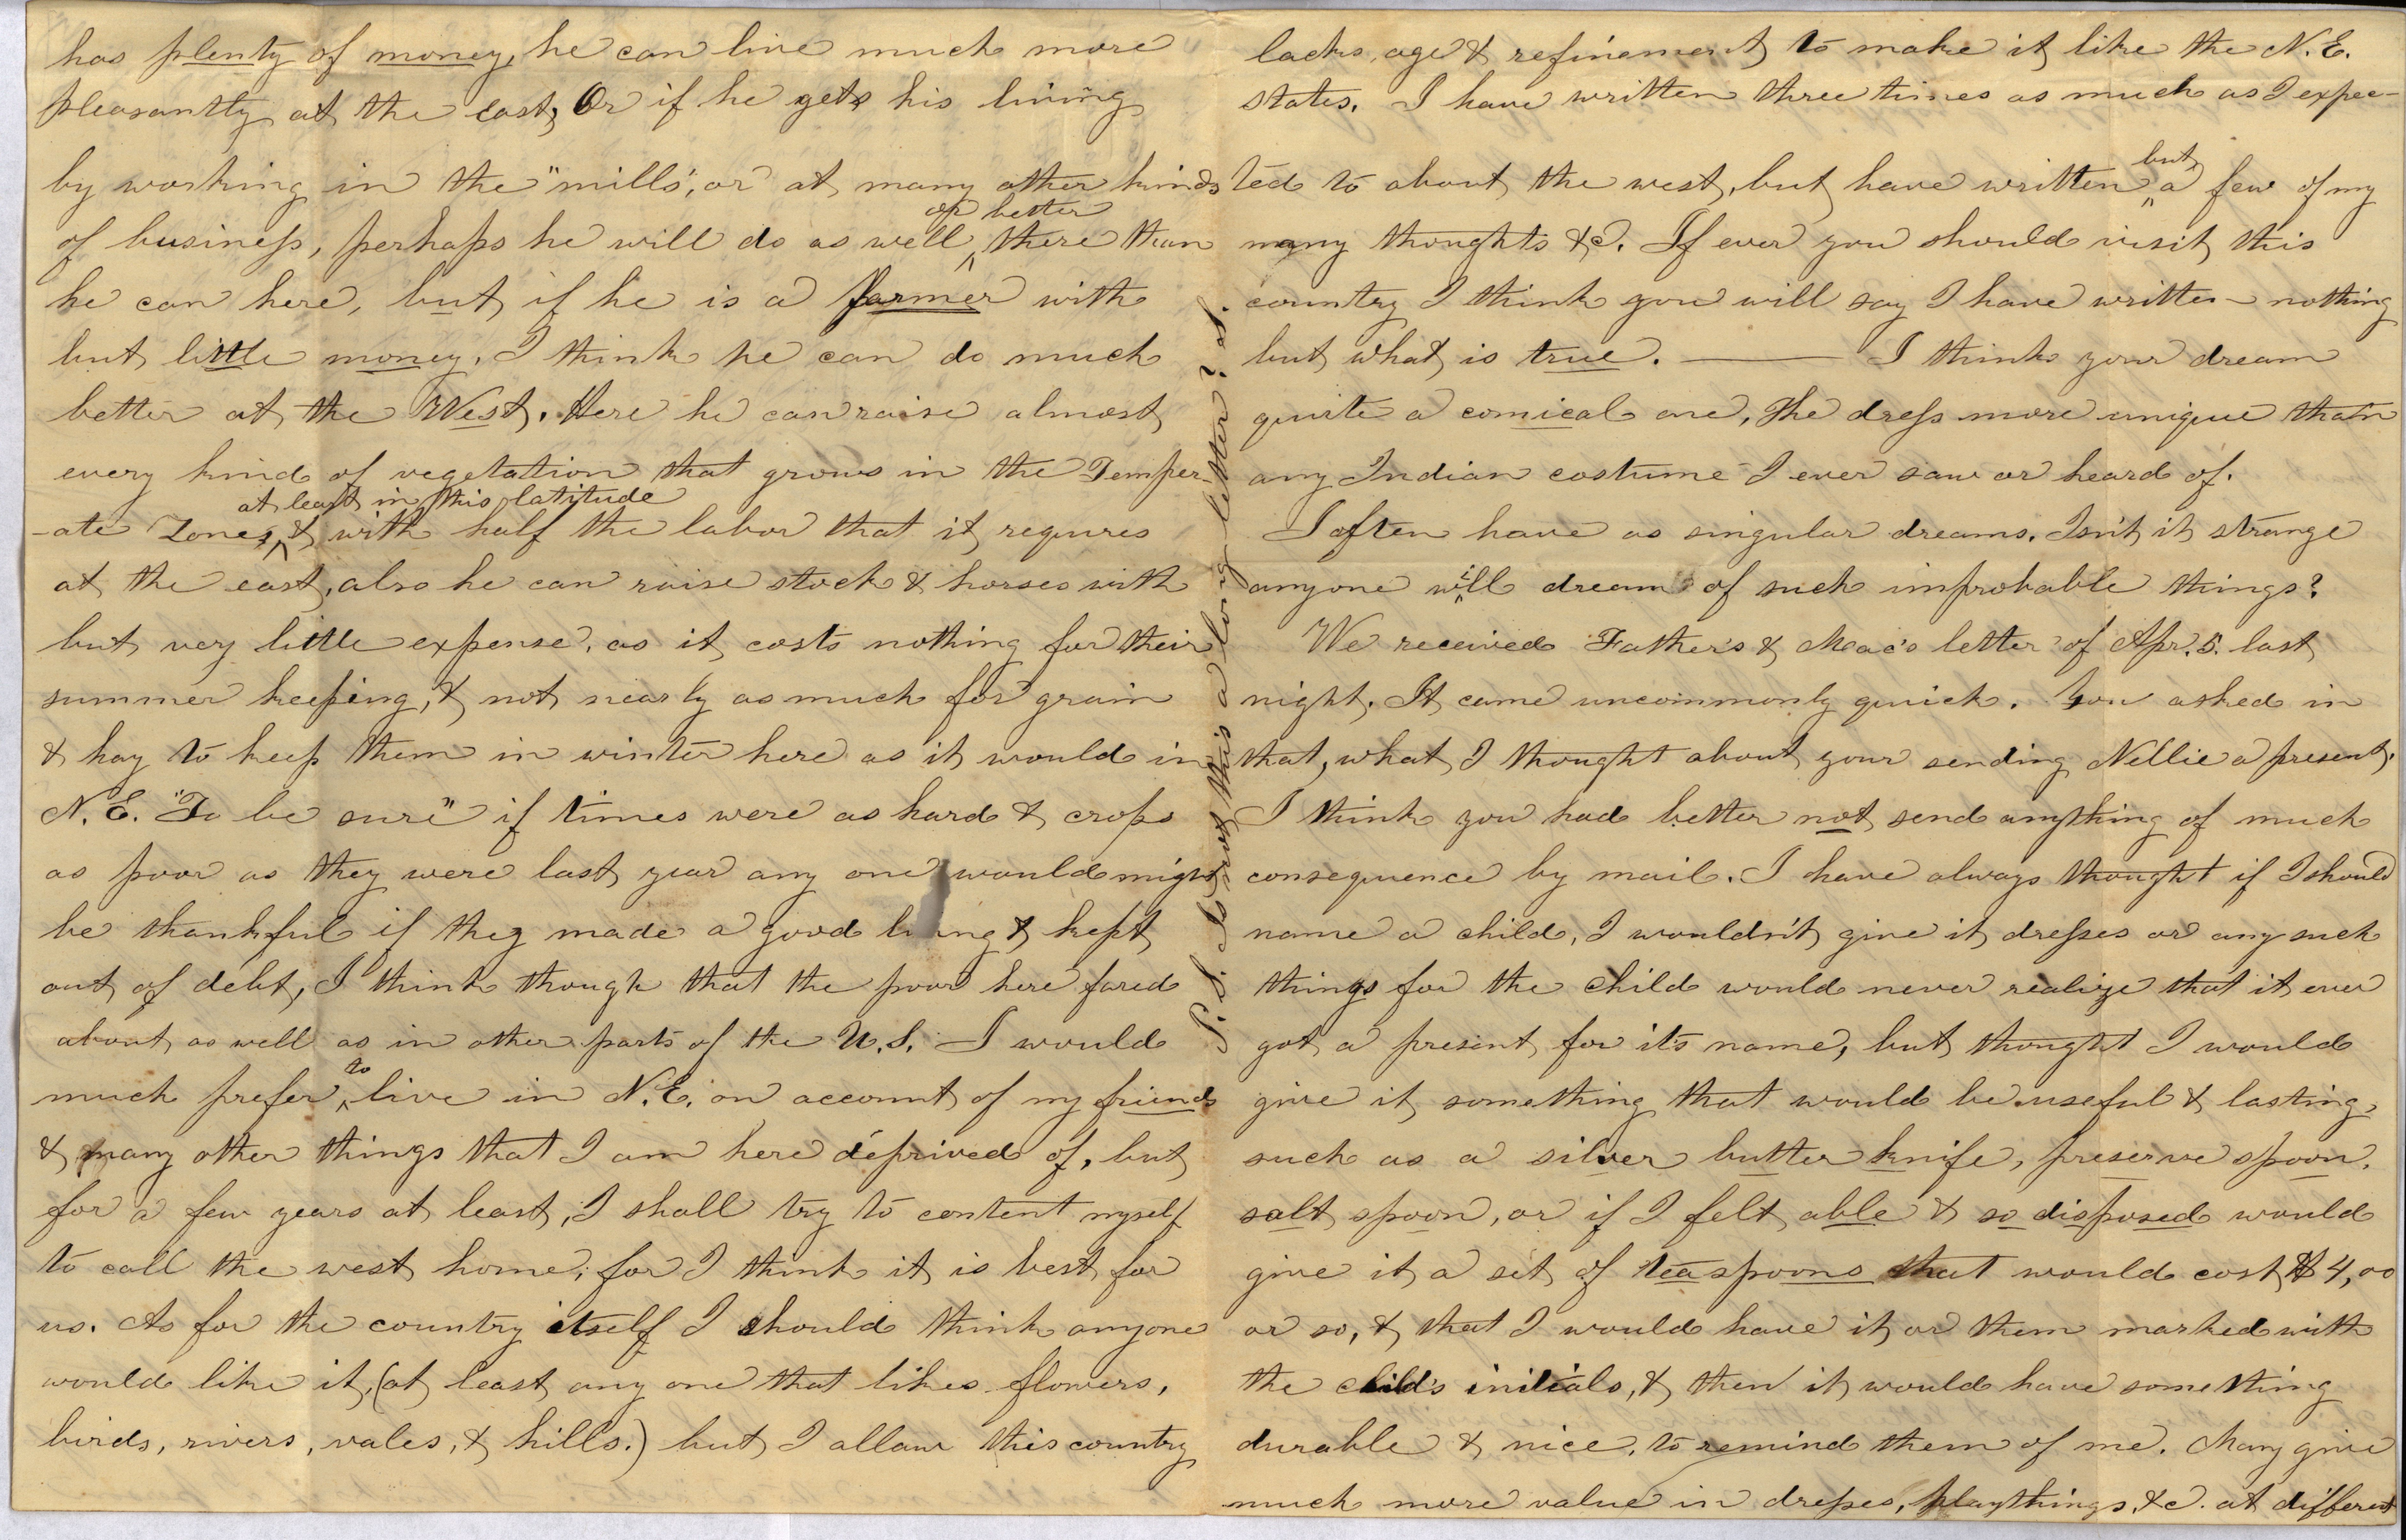 has plenty of money, he can live much more
pleasantly at the east, Or if he gets his living
by working in the "mills", or at many other kinds
of business, perhaps he will do as well or better there than
he can here, but if he is a farmer with
but little money, I think he can do much
better at the West. Here he can raise almost
every kind of vegetation that grows in the Temper-
-ate Zones, at least in this latitude & with half the labor that it requires
at the east, also he can raise stock & horses with
but very little expense, as it costs nothing for their
summer keeping, & not nearly as much for grain
& hay to keep them in winter here as it would in
N.E. "To be sure" if times were as hard & crops
as poor as they were last year any one would might
be thankful if they made a good living & kept
out of debt, I think though that the poor here fared
about as well as in other parts of the U.S. I would
much prefer to live in N.E. on account of my friends
& many other things that I am here deprived of, but
for a few years at least, I shall try to content myself
to call the west home; for I think it is best for
us. As for the country itself I should think anyone
would like it, (at least any one that likes flowers,
birds, rivers, vales, & hills.) but I allow this country
lacks, age & refinement to make it like the N.E.
states. I have written three times as much as I expec-
ted to about the west, but have written but a few of my
many thoughts &c. If ever you should visit this
country I think you will say I have written nothing
but what is true. — I think your dream
quite a comical one, The dress more unique than
any Indian costume I ever saw or heard of.
I often have as singular dreams. Isn't it strange
anyone will dream of such improbable things?
We received Father's & Mac's letter of Apr. 5. last
night. It came uncommonly quick. You asked in
that, what I thought about your sending Nellie a present.
I think you had better not send anything of much
consequence by mail. I have always thought if I should
name a child, I wouldn't give it dresses or any such
things for the child would never realize that it ever
got a present for it's name, but thought I would
give it something that would be useful & lasting,
such as a silver butter knife, preserve spoon,
salt spoon, or if I felt able & so disposed would
give it a set of teaspoons that would cost $4,00
or so, & that I would have it or them marked with
the child's initials, & then it would have something
durable & nice, to remind them of me. Many give
much more value in dresses, playthings, &c. at different
P.S. Is not this a long letter?